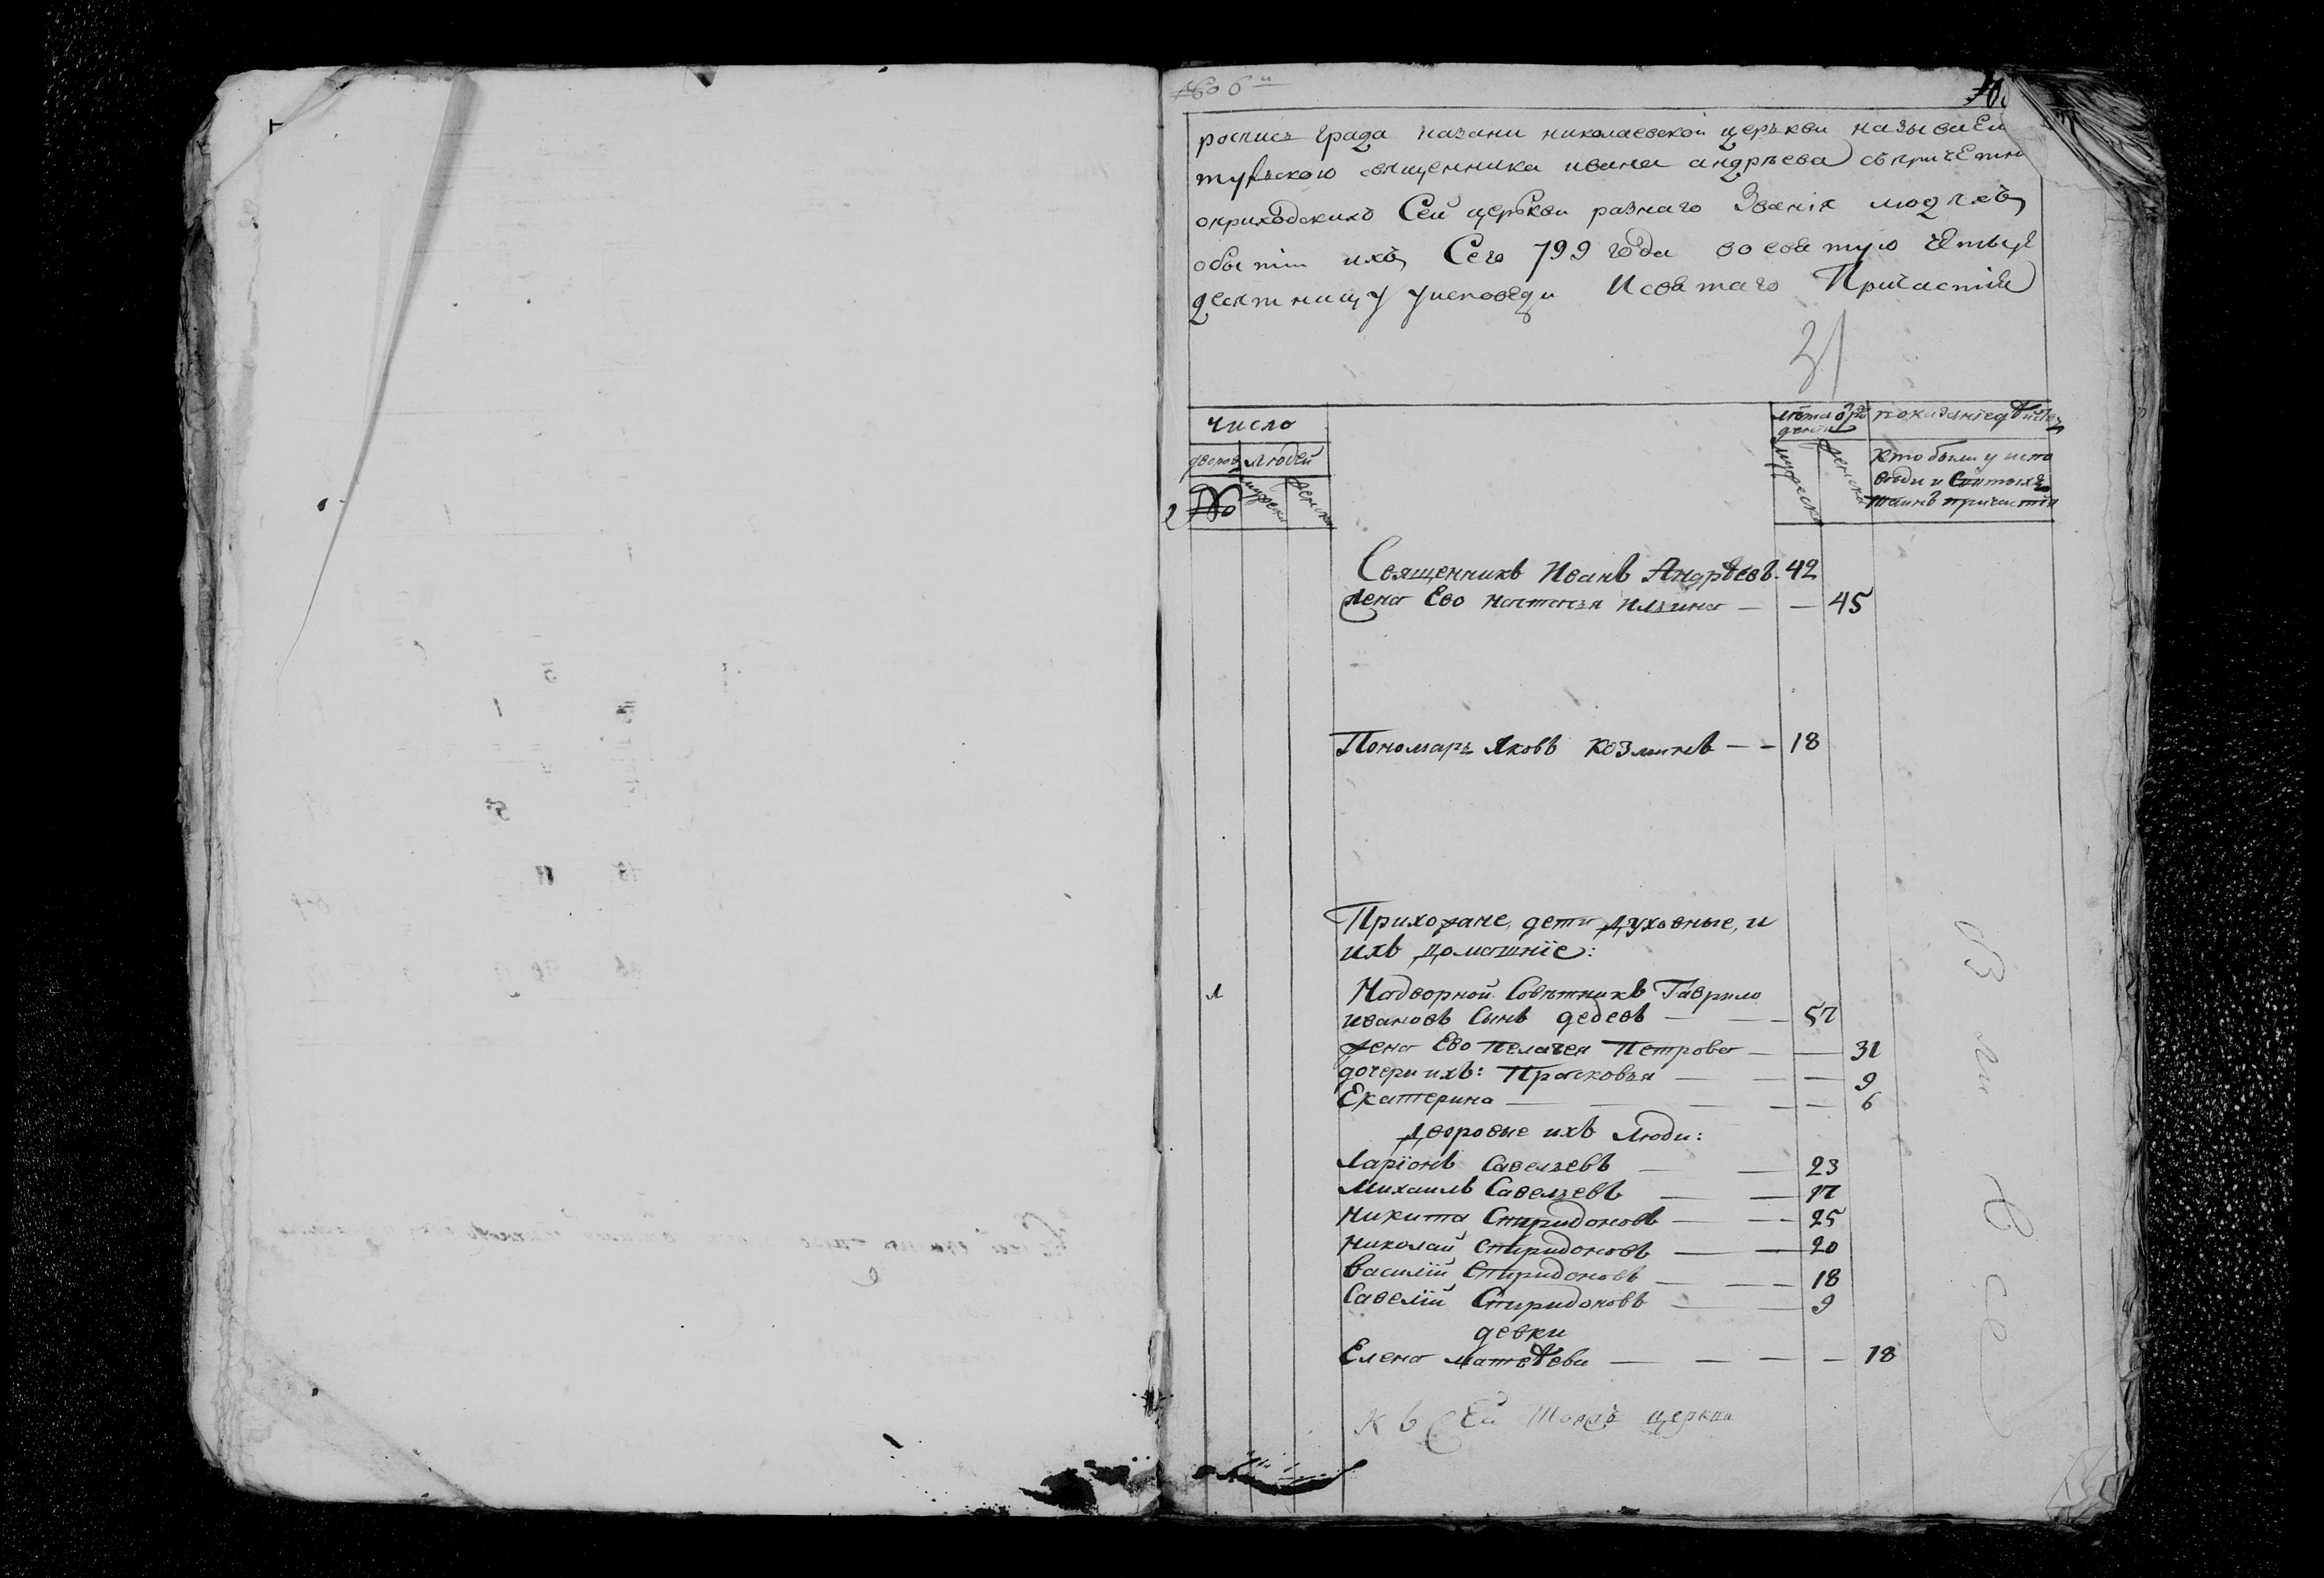 роспись града казани николаевской церькви называем
тульскою священника ивана андрѣева съ причетни
оприходскихъ Сей церькви разнаго Званія людяхъ
обытіи ихъ Сего 799 года восвятую четыре
десятницу уисповеди Исвятаго Причастія
31
число
лѣта от рож
дения
показаніе дѣйств
дворов людей
мужеска женска
мужеска женска
кто были у испо
веди и Святыхъ
таинъ причастія
Священникъ Иванъ Андрѣевъ 42
жена Ево настасья Ильина — — 45
Пономарь Яковъ Козминъ — — 18
Прихожане, дети духовные, и
ихъ домашніе:
1 Надворной Совѣтникъ Гаврило
ивановъ Сынъ дедевъ — — 57
жена Ево пелагея Петрова — — 31
дочери ихъ: Прасковья — — 9
Екатерина — — — — 6
дворовые ихъ люди:
Ларіонъ Савельевъ — — 23
Михаилъ Савельевъ — — 17
Никита Спиридоновъ — — 25
Николай Спиридоновъ — — 20
Василій Спиридоновъ — — 18
Савелій Спиридоновъ — — 9
девки
Елена матвѣева — — — — 18
къ Сей церкви